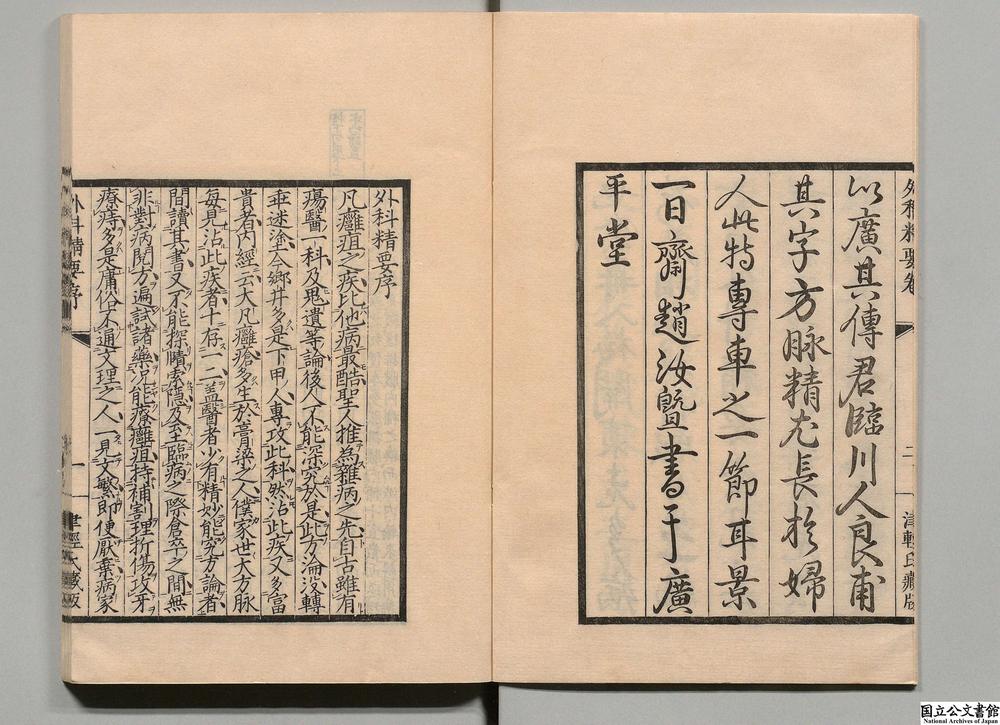 外科精要卷
二
津輕氏藏版
以廣其傳君臨川人良甫
其字方脉精尤長於婦
人此特專車之一節耳景
一日齋趙汝曁書于廣
平堂
外科精要序
凡癰疽之疾比他病最酷聖人推為雜病之先自古雖有
瘍醫一科及鬼遺等論後人不能深究於是此方淪沒轉
乖迷塗今鄉井多是下甲人專攻此科然沾此疾又多富
貴者內經云大凡癰瘡多生於膏粱之人僕家世大方脉
每見沾此疾者十存一二盖醫者少有精妙能究方論者
間讀其書又不能探賾索隱及至臨病之際倉卒之間無
非對病閱方遍試諸藥况能療癰疽持補割理折傷攻牙
療痔多是庸俗不通文理之人一見文繁即便厭棄病家
外科精要序
一
津輕氏藏版
国立公文書館
National Archives of Japan